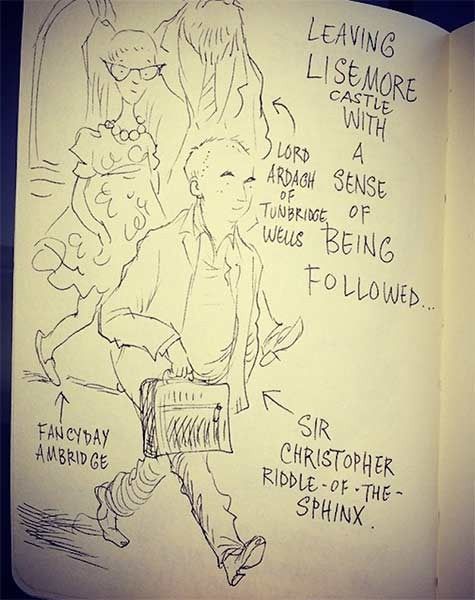 LEAVING
LISEMORE
CASTLE
WITH
A
SENSE
OF
BEING
FOLLOWED...
LORD
ARDAGH
OF
TUNBRIDGE
WELLS
FANCYDAY
AMBRIDGE
SIR
CHRISTOPHER
RIDDLE-OF-THE-
SPHINX.